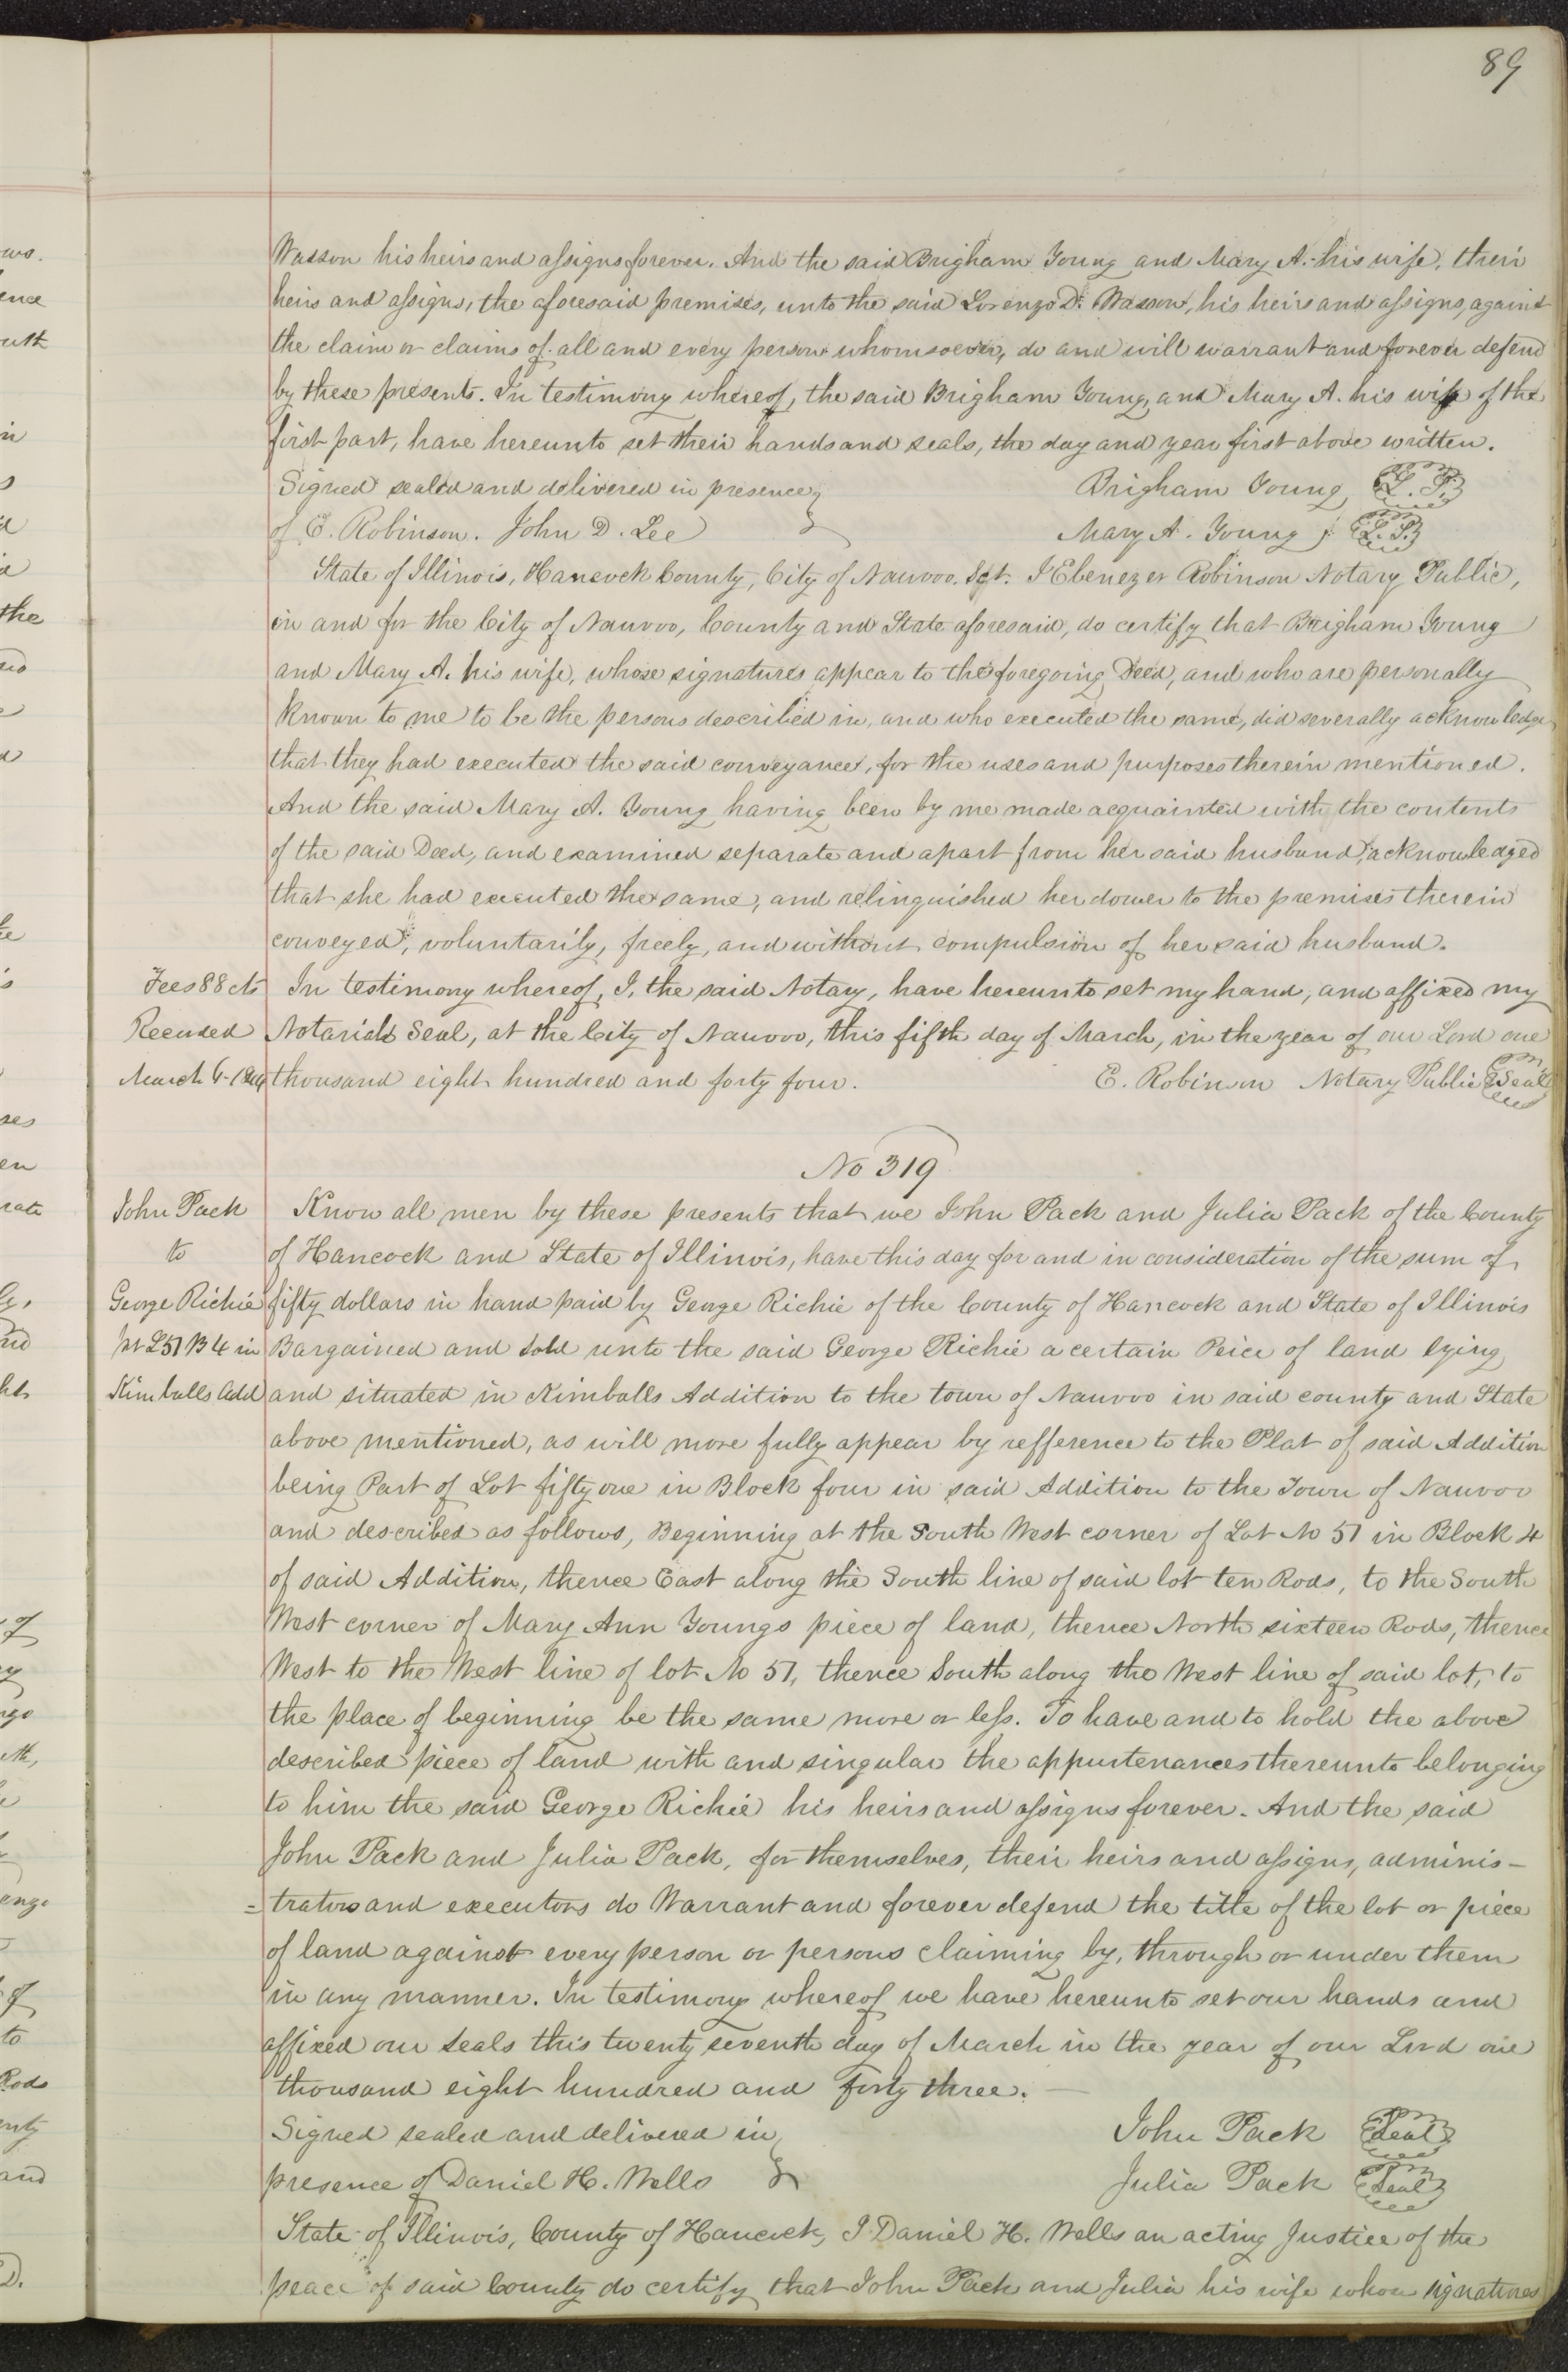 89
Wasson his heirs and assigns forever. And the said Brigham Young and Mary A. his wife, their
heirs and assigns, the aforesaid premises, unto the said Lorenzo D. Wasson, his heirs and assigns, against
the claim or claims of all and every person whomsoever, do and will warrant and forever defend
by these presents. In testimony whereof, the said Brigham Young, and Mary A. his wife of the
first part, have hereunto set their hands and seals, the day and year first above written.
Signed sealed and delivered in presence Brigham Young L.S.
of E. Robinson. John D. Lee Mary A. Young L.S.
State of Illinois, Hancock County, City of Nauvoo. Sct. I Ebenezer Robinson Notary Public,
in and for the City of Nauvoo, County and State aforesaid, do certify that Brigham Young
and Mary A. his wife, whose signatures appear to the foregoing Deed, and who are personally
known to me to be the persons described in, and who executed the same, did severally acknowledge
that they had executed the said conveyance, for the uses and purposes therein mentioned.
And the said Mary A. Young having been by me made acquainted with the contents
of the said Deed, and examined separate and apart from her said husband, acknowledged
that she had executed the same, and relinquished her dower to the premises therein
conveyed, voluntarily, freely, and without compulsion of her said husband.
Fees 88 cts In testimony whereof, I, the said Notary, have hereunto set my hand, and affixed my
Recorded Notarial Seal, at the City of Nauvoo, this fifth day of March, in the year of our Lord one
March thousand eight hundred and forty four. E. Robinson Notary Public Seal
No 319
John Pack Know all men by these presents that we John Pack and Julia Pack of the County
to of Hancock and State of Illinois, have this day for and in consideration of the sum of
George Richie fifty dollars in hand paid by George Richie of the County of Hancock and State of Illinois
pt L51 B4 in Bargained and sold unto the said George Richie a certain Peice of land lying
Kimballs Add and situated in Kimballs Addition to the town of Nauvoo in said county and State
above mentioned, as will more fully appear by refference to the Plat of said Addition
being Part of Lot fifty one in Block four in said Addition to the Town of Nauvoo
and described as follows, Beginning at the South West corner of Lot No 51 in Block 4
of said Addition, thence East along the South line of said lot ten Rods, to the South
West corner of Mary Ann Youngs piece of land, thence North sixteen Rods, thence
West to the West line of lot No 51, thence South along the West line of said lot, to
the place of beginning be the same more or less. To have and to hold the above
described piece of land with and singular the appurtenances thereunto belonging
to him the said George Richie his heirs and assigns forever. And the said
John Pack and Julia Pack, for themselves, their heirs and assigns, adminis-
=trators and executors do Warrant and forever defend the title of the lot or piece
of land against every person or persons claiming by, through or under them
in any manner. In testimony whereof we have hereunto set our hands and
affixed our seals this twenty seventh day of March in the year of our Lord one
thousand eight hundred and forty three.
Signed sealed and delivered in John Pack Seal
presence of Daniel H. Wells Julia Pack Seal
State of Illinois, County of Hancock, I Daniel H. Wells an acting Justice of the
peace of said County do certify that John Pack and Julia his wife whose signatures